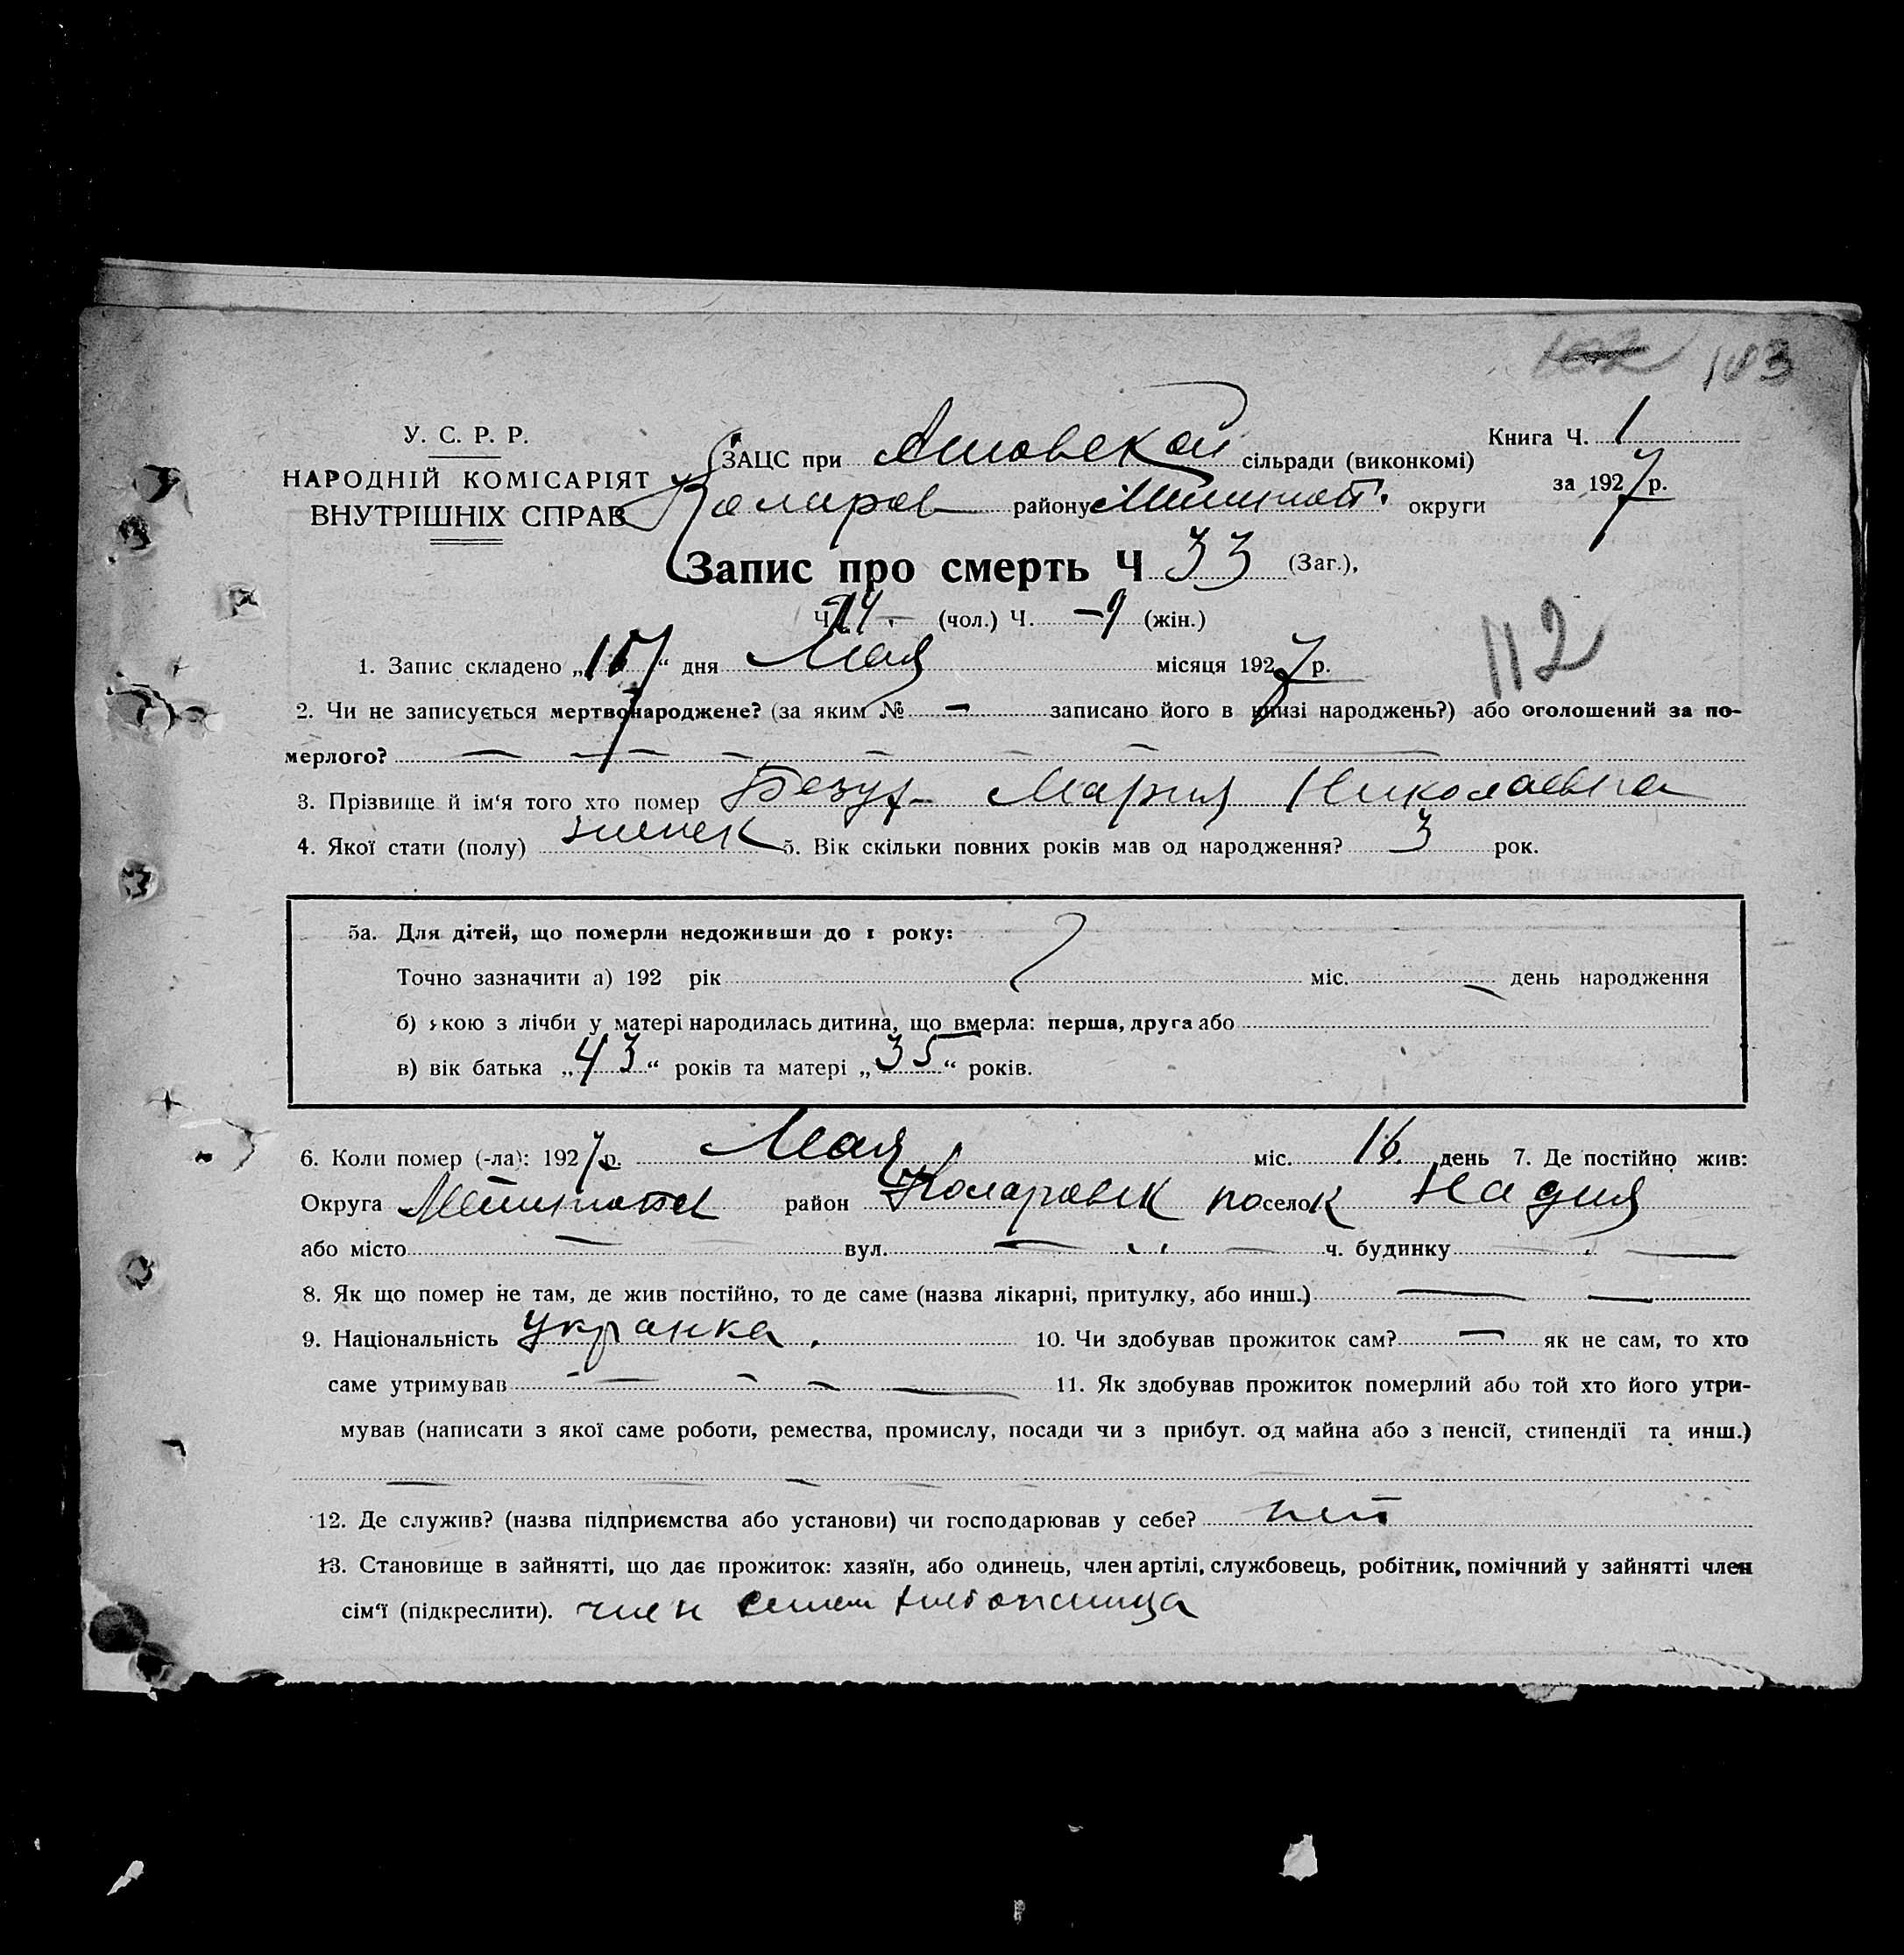 103
У. С. Р. Р.
НАРОДНІЙ КОМІСАРІЯТ
ВНУТРІШНІХ СПРАВ
ЗАЦС при сільради (виконкомі)
Коларов району округи
Книга Ч. 1
за 1927 р.
Запис про смерть Ч 33 (Заг.),
Ч. 24 (чол.) Ч. 9 (жін.)
112
1. Запис складено „17“ дня Мая місяця 1927 р.
2. Чи не записується мертвонароджене? (за яким № — записано його в книзі народжень?) або оголошений за по-
мерлого? —
3. Прізвище й ім‘я того хто помер Безу Мария Николаевна
4. Якої стати (полу) женск 5. Вік скільки повних років мав од народження? 3 рок.
5а. Для дітей, що померли недоживши до 1 року:
Точно зазначити а) 192 рік міс. день народження
б) якою з лічби у матері народилась дитина, що вмерла: перша, друга або
в) вік батька „43“ років та матері „35“ років.
6. Коли помер (-ла): 1927 р. Мая міс. 16 день 7. Де постійно жив:
Округа район Коларовск поселок Надия
або місто — вул. — ч. будинку —
8. Як що помер не там, де жив постійно, то де саме (назва лікарні, притулку, або инш.) —
9. Національність Укранка. 10. Чи здобував прожиток сам? — як не сам, то хто
саме утримував — 11. Як здобував прожиток померлий або той хто його утри-
мував (написати з якої саме роботи, ремества, промислу, посади чи з прибут. од майна або з пенсії, стипендії та инш.)
—
12. Де служив? (назва підприємства або установи) чи господарював у себе? нет
13. Становище в зайнятті, що дає прожиток: хазяїн, або одинець, член артілі, службовець, робітник, помічний у зайнятті член
сім‘ї (підкреслити). член семьи хлебопашца